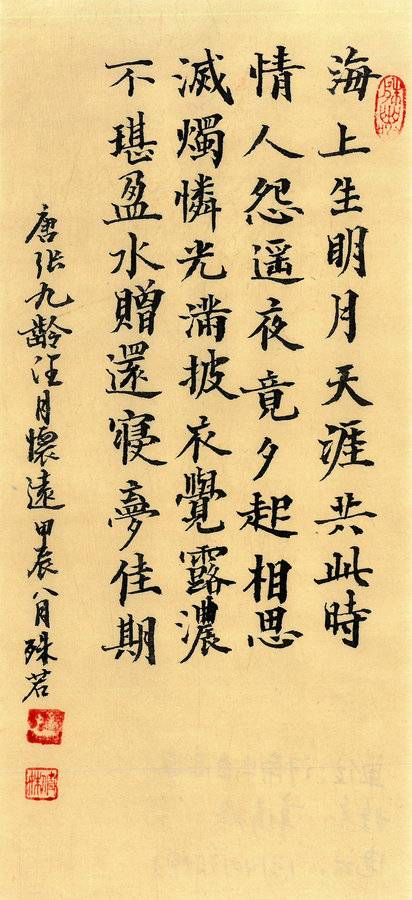 海上生明月天涯共此時
情人怨遥夜竟夕起相思
滅燭憐光滿披衣覺露濃
不堪盈水贈還寢夢佳期
唐張九齡汪月懷遠甲辰八月殊若